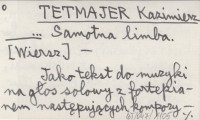 TETMAJER Kazimierz
... Samotna limba.
[Wiersz] —
Jako tekst do muzyki
na głos solowy z fortepia-
nem następujących kompozy-